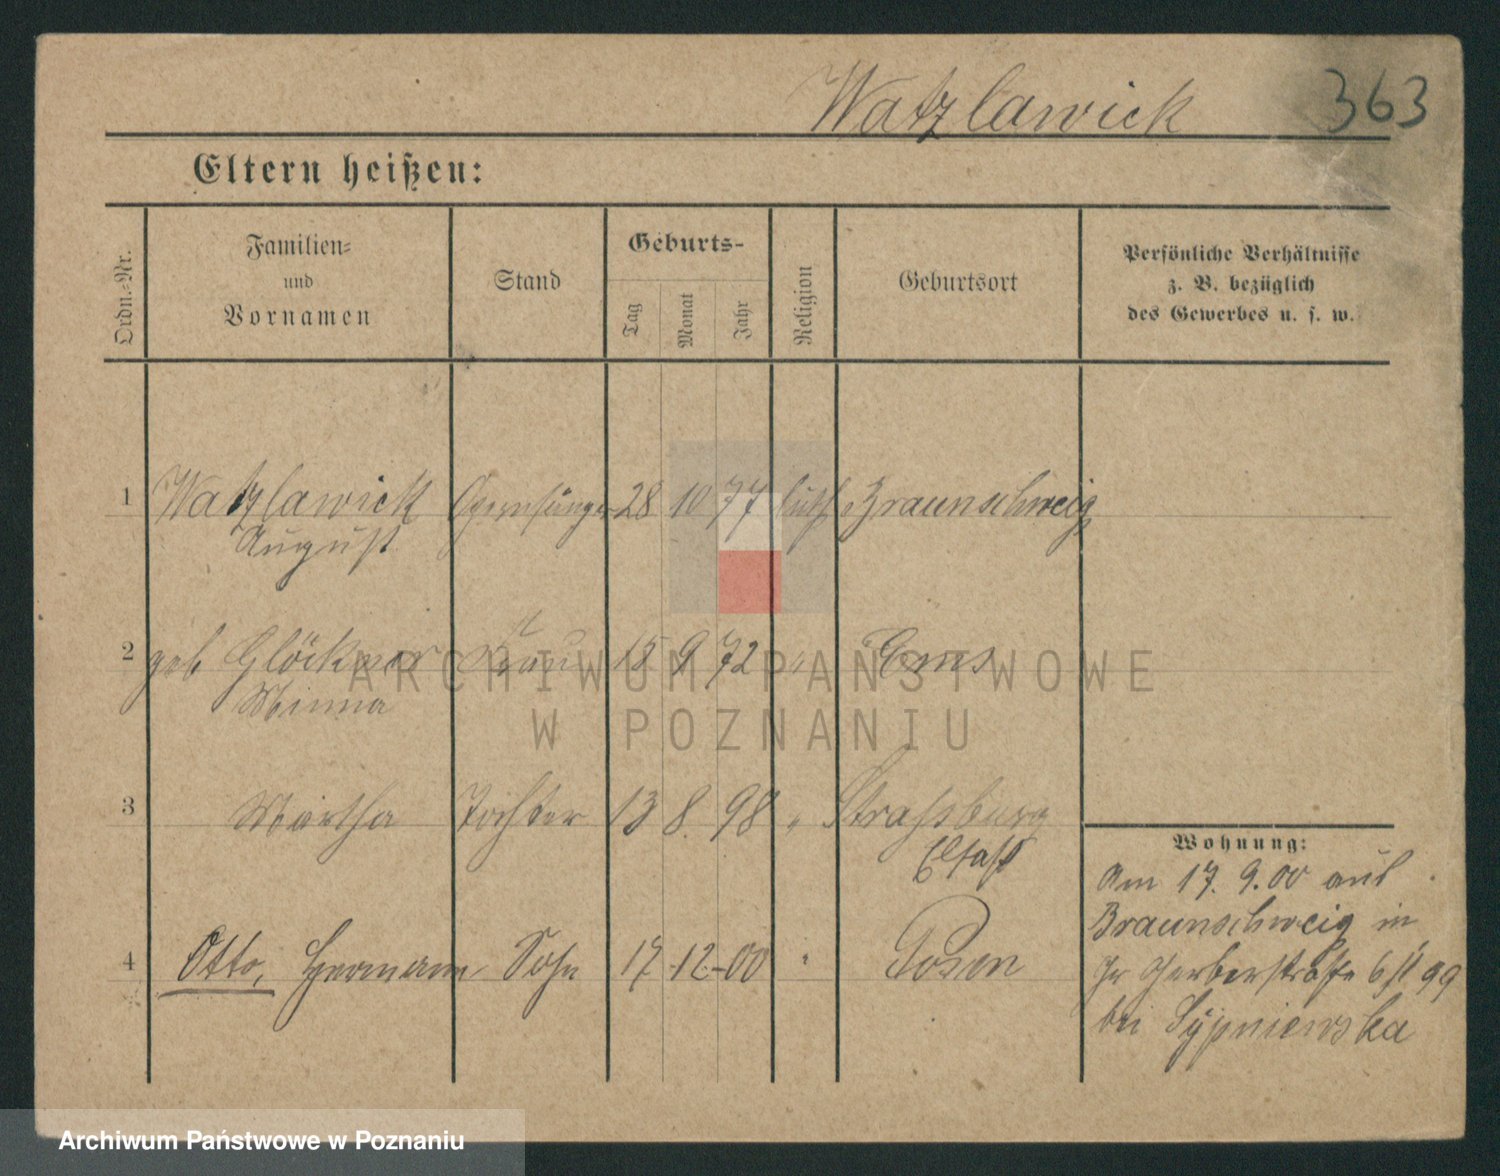 Watzlawick 363
Eltern heißen:
Ordn.-Nr.
Familien-
und
Vornamen
Stand
Geburts-
Tag
Monat
Jahr
Religion
Geburtsort
Persönliche Verhältnisse
z. B. bezüglich
des Gewerbes u. s. w.
1 Watzlawick Opernsänger 28 10 77 luth. Braunschweig
August
2 geb Glöckner Frau 15 9 72 " Ems
Minna
3 Martha Tochter 13 8. 98 " Straßburg
Elsaß
4 Otto, Hermann Sohn 17 -12.-00 " Posen
Wohnung:
Am 17. 9. 00 aus
Braunschweig in
Gr Gerberstraße
bei Sypniewska
ARCHIWUM PAŃSTWOWE
W POZNANIU
Archiwum Państwowe w Poznaniu